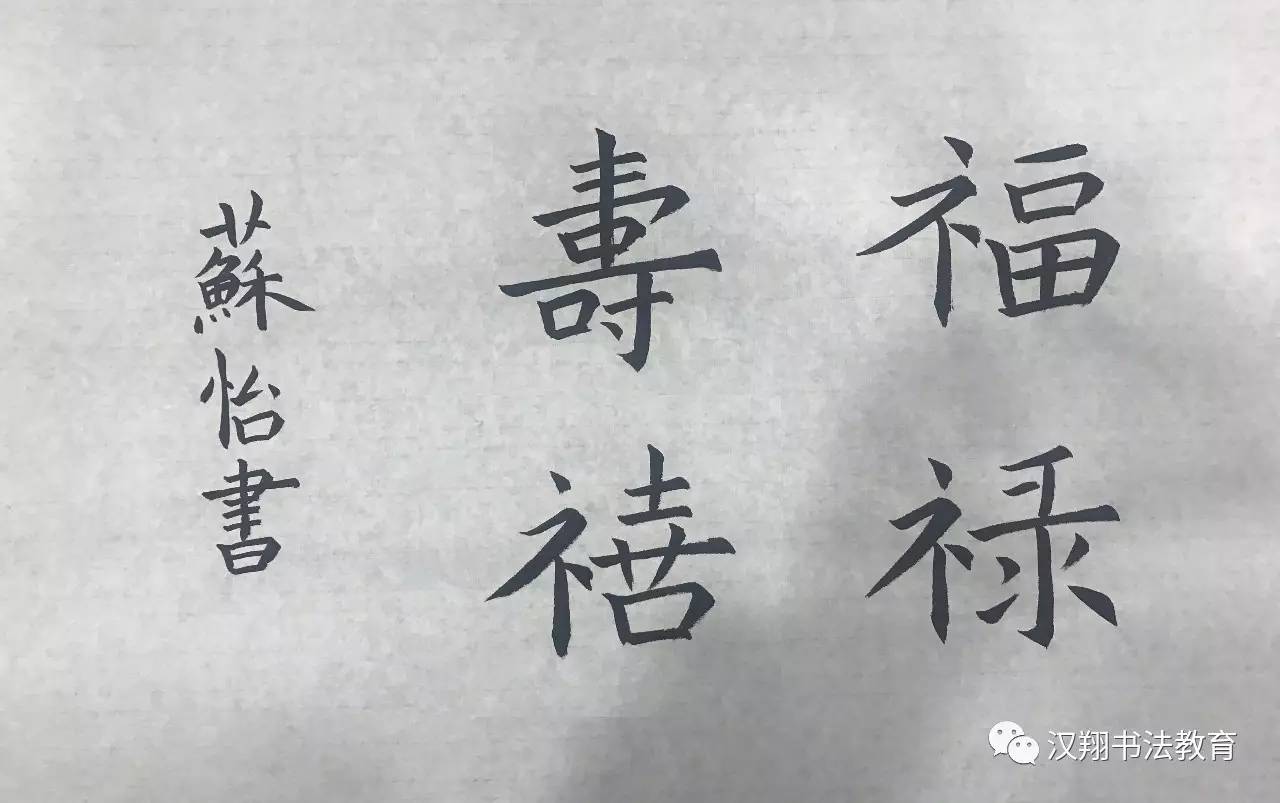 福禄
壽禧
蘇怡書
汉翔书法教育